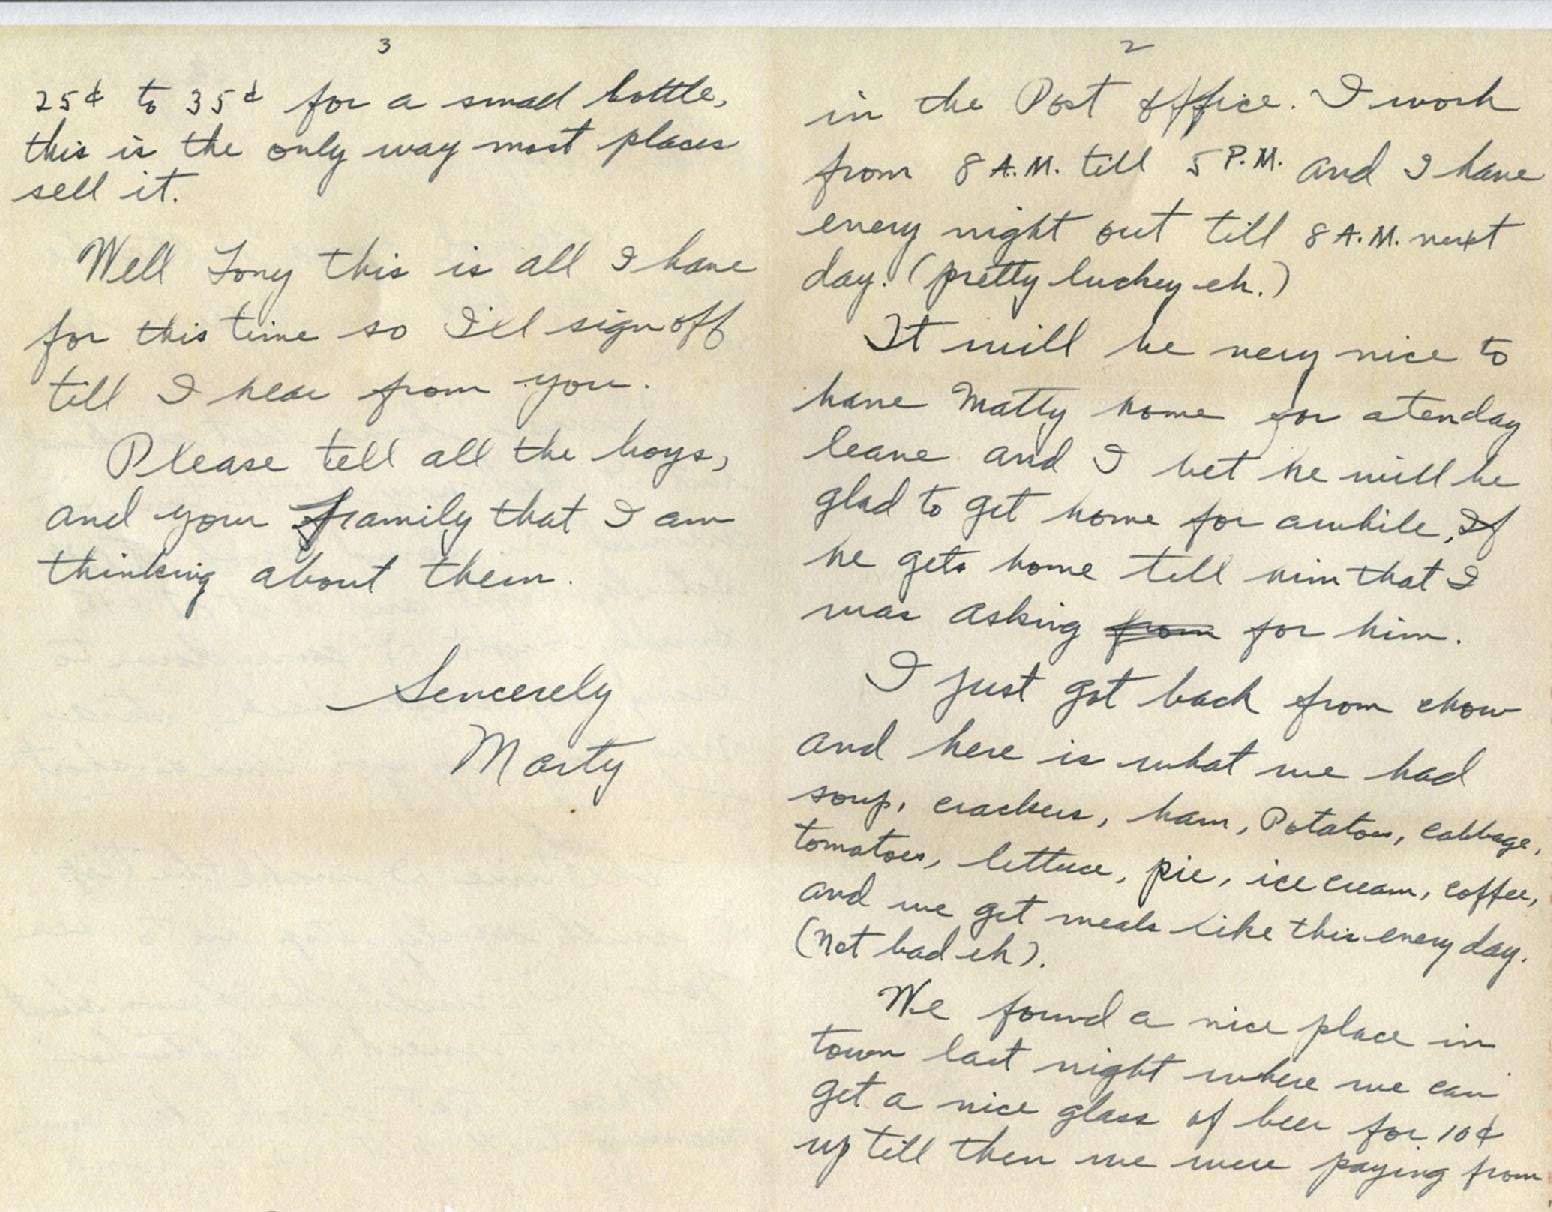 2
in the Post Office. I work
from 8 A.M. till 5 P.M. and I have
every night out till 8 A.M. next
day. (pretty luckey eh.)
It will be very nice to
have Matty home for a tenday
leave and I bet he will be
glad to get home for awhile, If
he gets home tell him that I
was asking from for him.
I just got back from chow
and here is what we had
soup, crackers, ham, Potatoes, cabbage,
tomatoes, lettuce, pie, ice cream, coffee,
and we get meals like this every day.
(not bad eh).
We found a nice place in
town last night where we can
get a nice glass of beer for 10¢
up till then we were paying from
3
25¢ to 35¢ for a small bottle,
this is the only way most places
sell it.
Well Tony this is all I have
for this time so I'll sign off
till I hear from you.
Please tell all the boys,
and your family that I am
thinking about them.
Sencerely
Marty